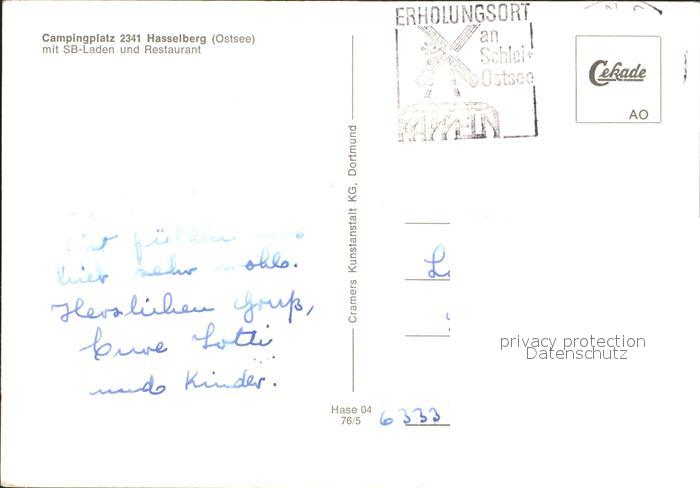 Campingplatz 2341 Hasselberg (Ostsee)
mit SB-Laden und Restaurant
wir fühlen uns
hier sehr wohl.
Herzlichen Gruß,
Eure Lotti
und Kinder.
Cramers Kunstanstalt KG, Dortmund
Hase 04
76/5
ERHOLUNGSORT
an
Schlei+
Ostsee
KAPPELN
Cekade
AO
6333
privacy protection
Datenschutz